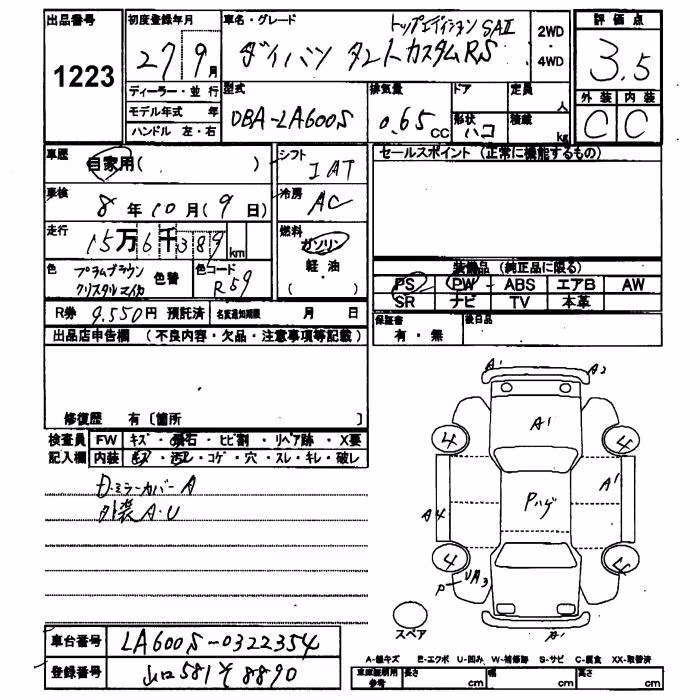 出品番号
1223
初度登録年月
27 9月
ディーラー・並 行
モデル年式 年
ハンドル 左・右
車名・グレード
トップエディション SAⅡ
ダイハツ タントカスタムRS
2WD
・
4WD
評価点
3.5
外装 内装
C C
型式
DBA-LA600S
排気量
0.65 CC
ドア
形状
ハコ
定員
人
積載
kg
車歴
自家用( )
シフト
IAT
車検
8年10月(9日)
冷房
AC
走行
15万6千389km
燃料
ガソリン
軽・油
( )
色
プラムブラウン
クリスタルマイカ
色替
色コード
R59
R券 9.550円 預託済
名変通知期限 月 日
セールスポイント (正常に機能するもの)
装備品 (純正品に限る)
PS PW ABS エアB AW
SR ナビ TV 本革
保証書
有・無
後日品
出品店申告欄 (不良内容・欠品・注意事項等記載)
修復歴 有〔箇所 〕
検査員
記入欄
FW キズ・飛石・ヒビ割・リペア跡・X要
内装 ・汚レ・コゲ・穴・スレ・キレ・破レ
D.ミラーカバーA
外装A.U
A1 A2
A1
4 4
A4 Pハゲ A1
4 4
P UA3
A1
スペア
車台番号
LA600S-0322354
登録番号
山口581そ8890
A-線キズ E-エクボ U-凹み W-補修跡 S-サビ C-腐食 XX-取替済
車庫証明用
参考
長さ cm 幅 cm 高さ cm